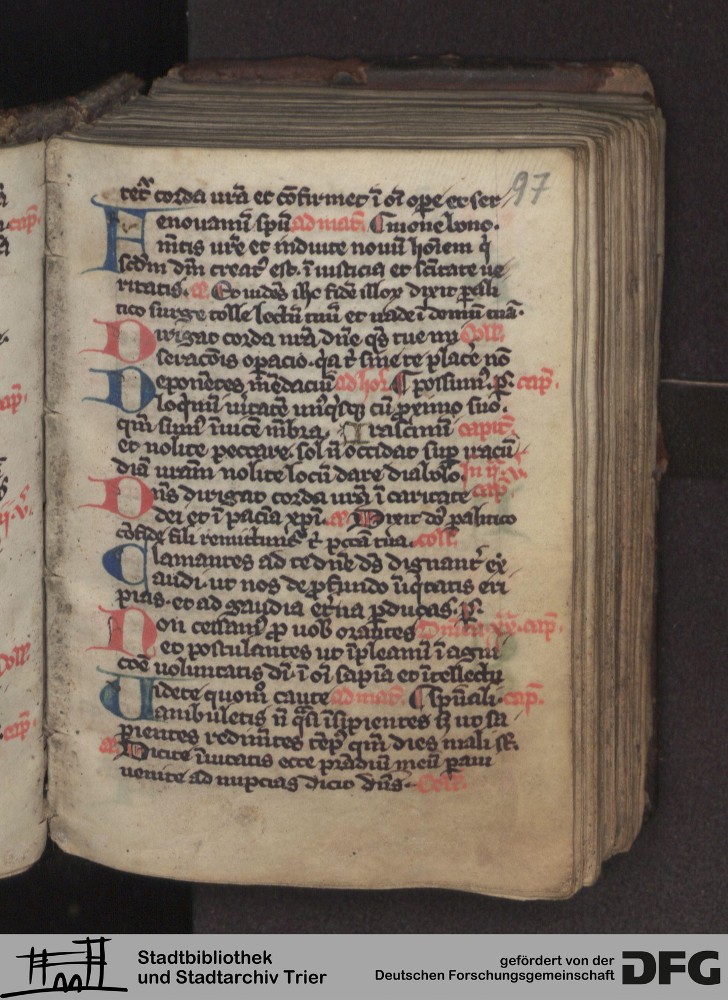 97
tet᷑ corda ur̄a et cōfirmet ī oī ope et ser
Renouamī spū ad mat. mone bono.
mētis ur̄e et induite nouū hoīem q̄
scdm dm̄ creat᷒ est. ī iusticia et sc̄itate ue
ritatis. a. Et uidēs ih̄c fidē illoꝝ dixit ꝑali
tico surge tolle lectū tuū et uade ī domū tuā.
Dirigat corda nr̄a dn̄e q̄s tue mi Coll.
seracōis oꝑacio. q̄a t᷑ sine te place᷑ nō
Deponētes mēdaciū ad hor. possum᷒. p̄. cap.
loq̄mī uītatē unꝰq̄sq̨ cū ꝓximo suo.
qm̄ sum᷒ īuicē mēbra. Irascimī capit.
et nolite peccare. sol n̄ occidat suꝑ iracū
diā ur̄am nolite locū dare diabolo.
Dn̄s dirigat corda ur̄a ī caritate cap.
dei et ī pacīa xp̄i. a. Dixit dn̄s ꝑalitico
cōfide fili remittunt᷑ t᷑ pctā tua. coll.
Clamantes ad te dn̄e ds̄ dignant᷑ ex
audi. ut nos de ꝓfundo īiq̄tatis eri
pias. et ad gaudia et᷑na ꝑducas. p̄.
Non cessam᷒ ꝓ uob̄ orantes Dnica xx. cap.
et postulantes ut īpleamī ī agni
cōe uoluntatis dī. ī oī sapīa et ītellectu
Videte quom̄ caute ad mat. spūali. cap.
ambuletis n̄ q̄si īsipientes sȝ ut sa
pientes redimētes tēp᷒ qm̄ dies mali st̄.
a. Dicite īuitatis ecce prādiū meū ꝑaui
uenite ad nupcias dicit dn̄s. Coll.
Stadtbibliothek
und Stadtarchiv Trier
gefördert von der
Deutschen Forschungsgemeinschaft
DFG